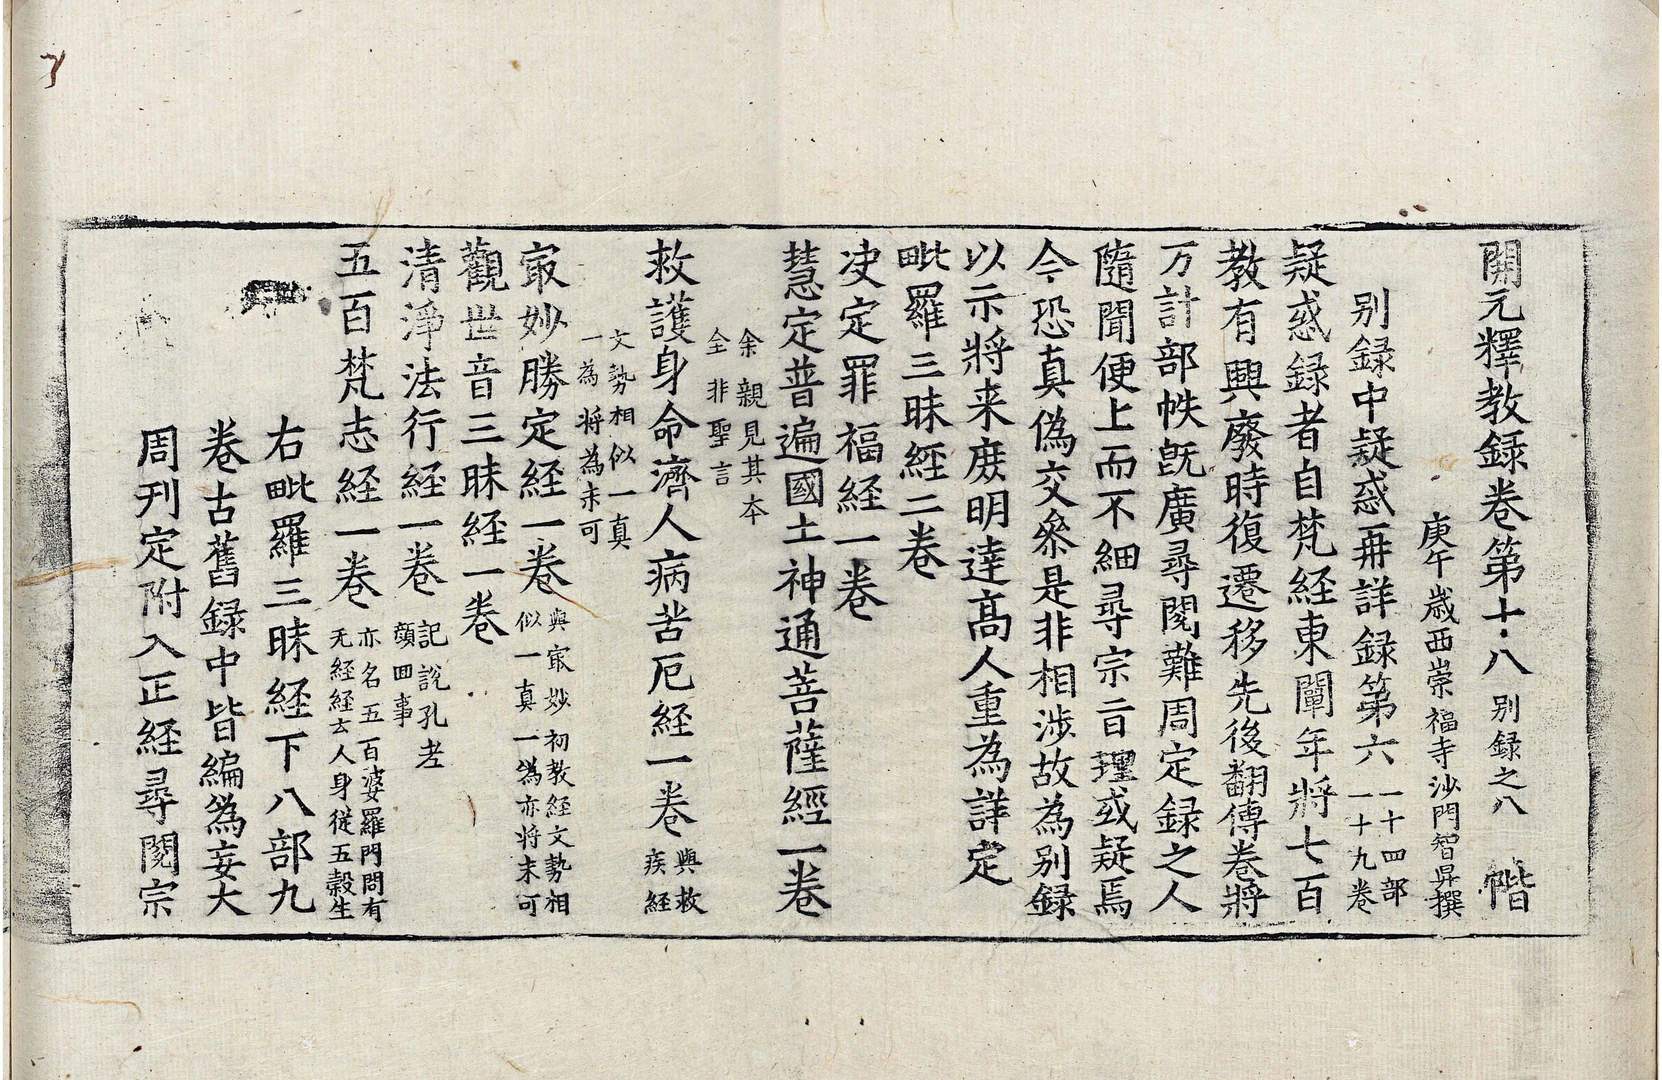 開元釋教録卷第十八 别録之八 階
庚午歲西崇福寺沙門智昇撰
别録中疑惑再詳録第六 一十四部 一十九卷
疑惑録者自梵経東闡年將七百
教有興廢時復遷移先後翻傳卷將
万計部帙旣廣尋閱難周定録之人
隨聞便上而不細尋宗旨理或疑焉
今恐真偽交叅是非相渉故為别録
以示將来庻明達髙人重為詳定
毗羅三昧經二卷
决定罪福経一卷
慧定普遍國土神通菩薩經一卷
余親見其本
全非聖言
救護身命濟人病苦厄経一卷 與救
疾経
文勢相似一真
一為將為未可
㝡妙勝定経一卷 與㝡妙初教経文勢相
似一真一為亦將未可
觀世音三昧経一卷
清淨法行経一卷 記說孔老
顔囬事
五百梵志経一卷 亦名五百婆羅門問有
无経経云人身従五穀生
右毗羅三昧経下八部九
卷古舊録中皆編為妄大
周刋定附入正経尋閱宗